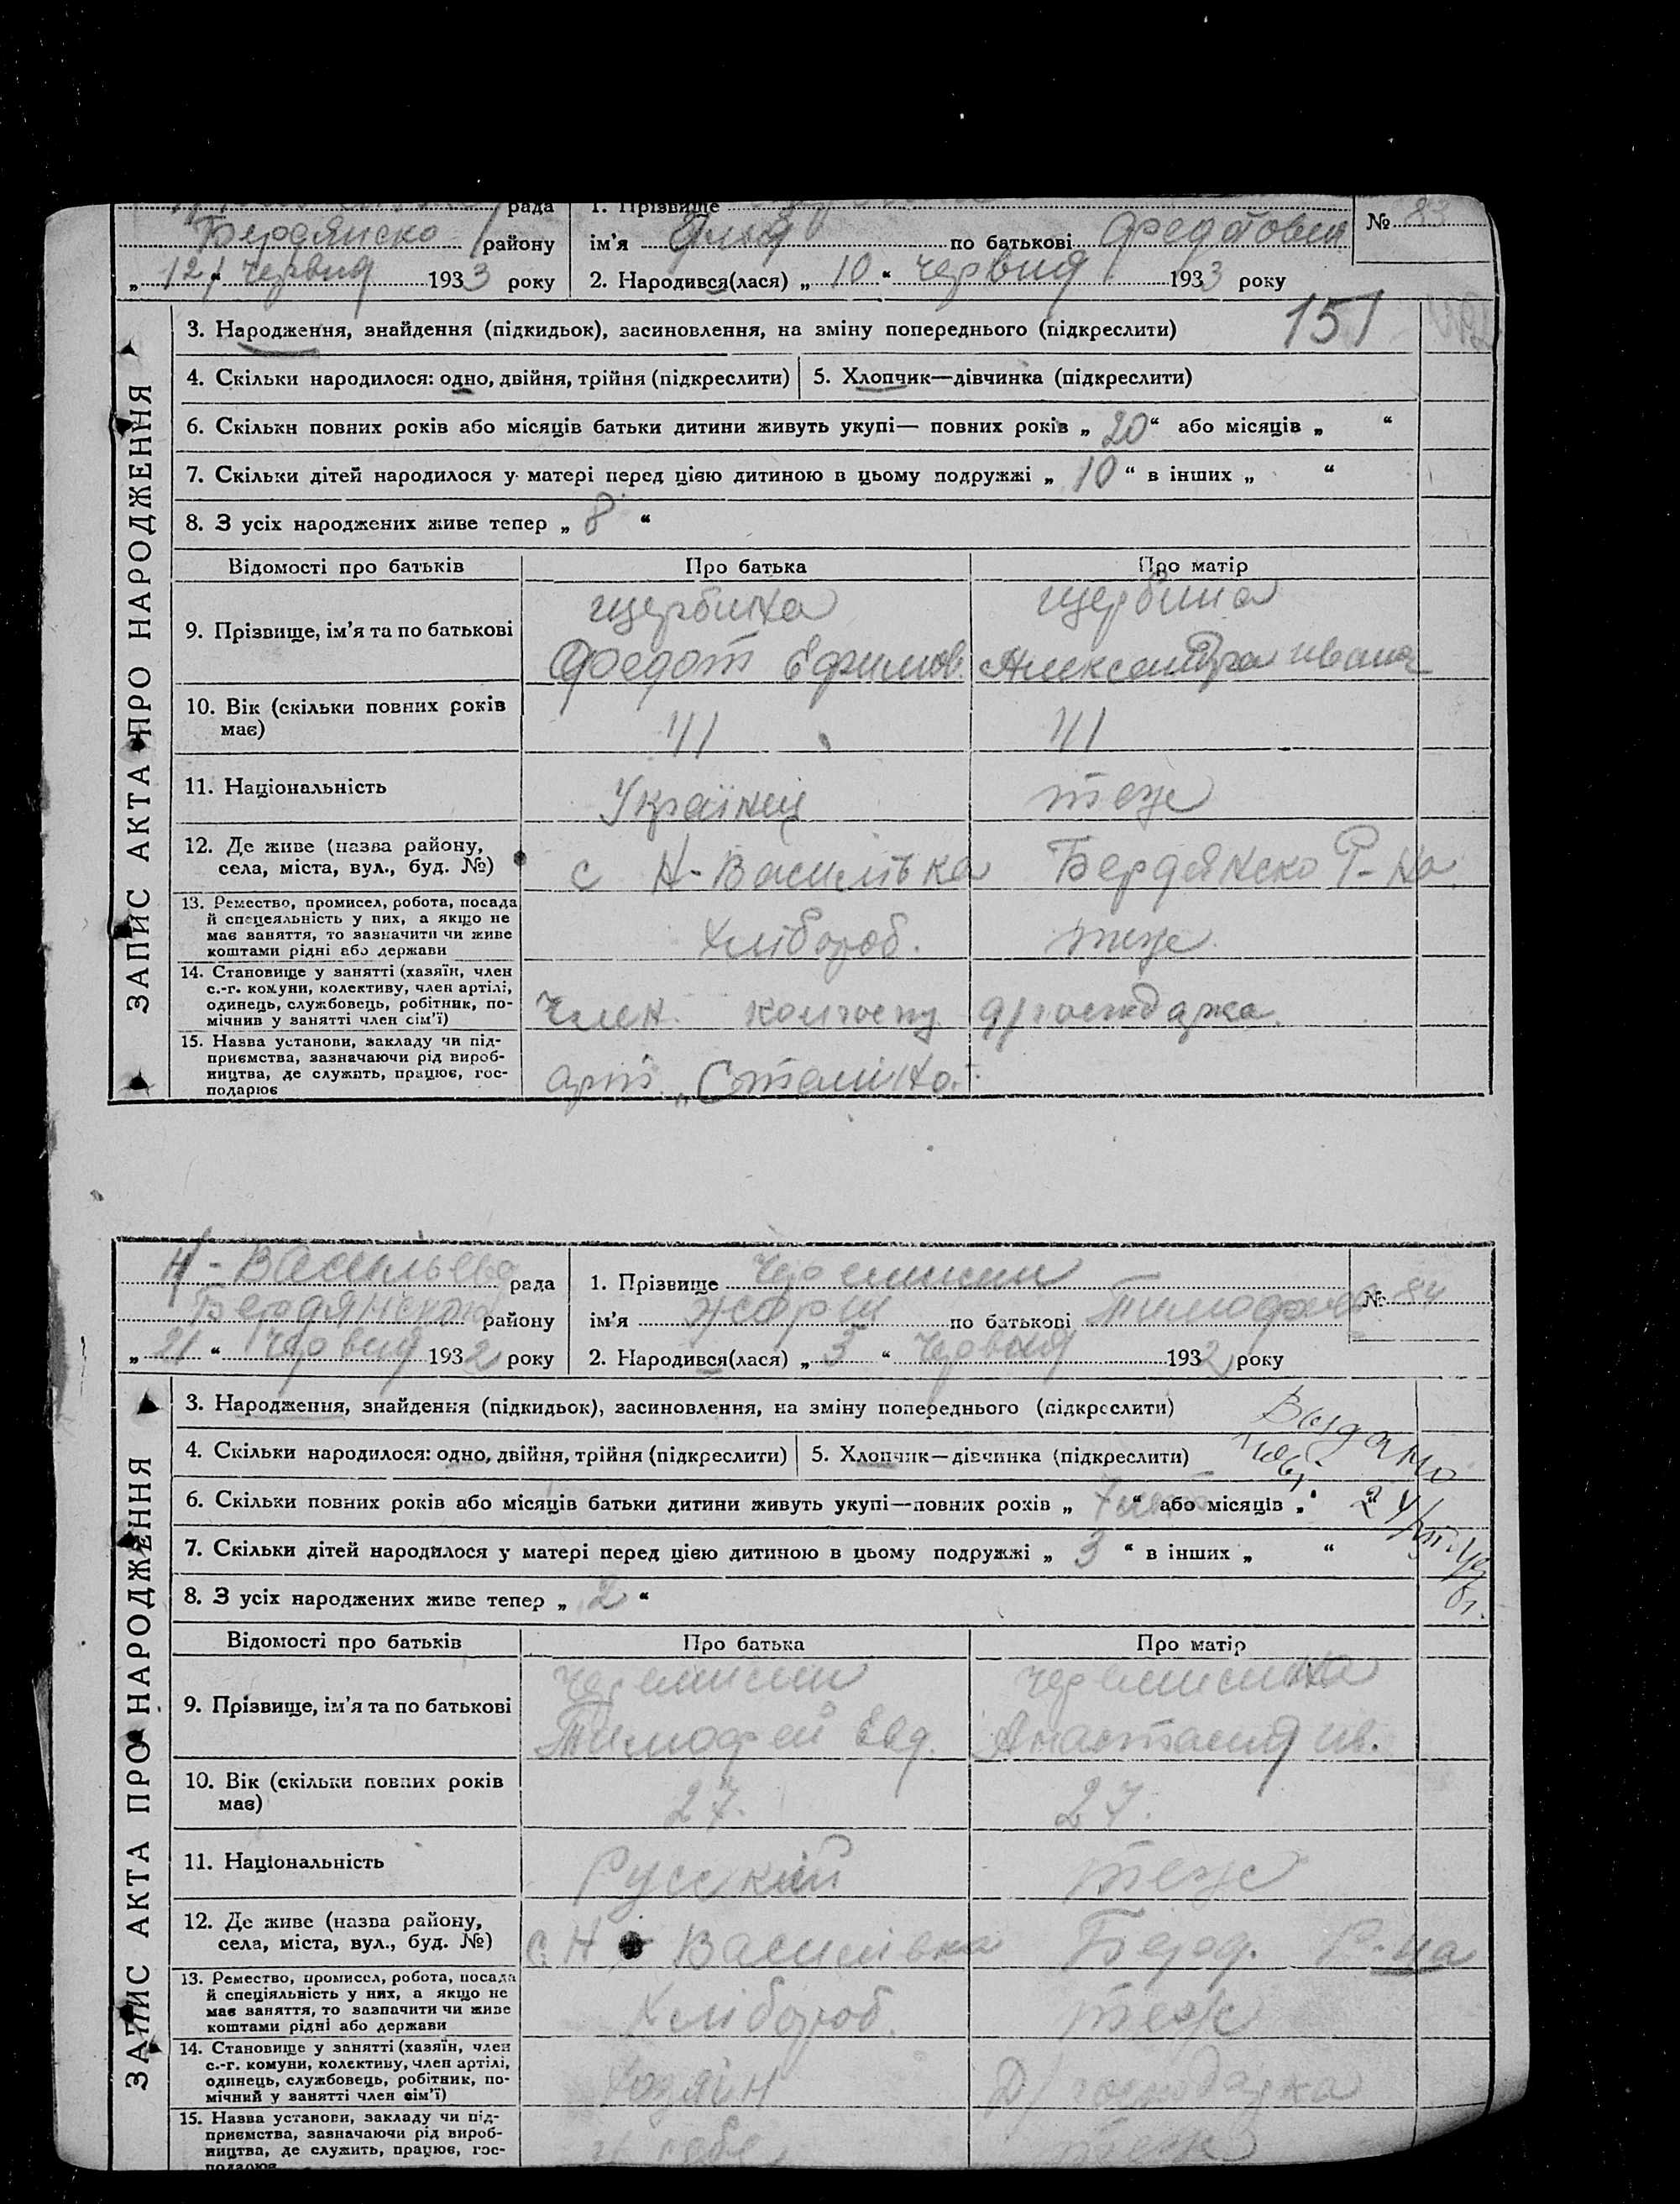 рада
1. Прізвище
№ 83
Бердянско району
ім'я Илья по батькові Федотович
„ 12 “ червня 1933 року
2. Народився(лася) „ 10 “ червня 1933 року
ЗАПИС АКТА ПРО НАРОДЖЕННЯ
3. Народження, знайдення (підкидьок), засиновлення, на зміну попереднього (підкреслити) 151
4. Скільки народилося: одно, двійня, трійня (підкреслити)
5. Хлопчик—дівчинка (підкреслити)
6. Скільки повних років або місяців батьки дитини живуть укупі— повних років „ 20 “ або місяців „ “
7. Скільки дітей народилося у матері перед цією дитиною в цьому подружжі „ 10 “ в інших „ “
8. З усіх народжених живе тепер „ 8 “
Відомості про батьків
Про батька
Про матір
9. Прізвище, ім'я та по батькові
щербина
Федот Ефимов.
щербина
Александра Ивана
10. Вік (скільки повних років
має)
41
41
11. Національність
Українец
теже
12. Де живе (назва району,
села, міста, вул., буд. №)
с Н-Василівка Бердянско Р-На.
13. Ремество, промисел, робота, посада
й спецеяльність у них, а якщо не
має заняття, то зазначити чи живе
коштами рідні або держави
хлібороб.
теже
14. Становище у занятті (хазяїн, член
с.-г. комуни, колективу, член артілі,
одинець, службовець, робітник, по-
мічнив у занятті член сім'ї)
член. колгоспу
д/господарка.
15. Назва установи, закладу чи під-
приємства, зазначаючи рід вироб-
ництва, де служить, працює, гос-
подарює
арт. „Сталіна“
Н-Васильево рада
1. Прізвище Черемисин
№ 84
Бердянского району
ім'я по батькові Тимофеев
„ 21 “ Червня 1932 року
2. Народився(лася) „ 3 “ Червня 1932 року
ЗАПИС АКТА ПРО НАРОДЖЕННЯ
3. Народження, знайдення (підкидьок), засиновлення, на зміну попереднього (підкреслити)
Выдано
4. Скільки народилося: одно, двійня, трійня (підкреслити)
5. Хлопчик—дівчинка (підкреслити)
6. Скільки повних років або місяців батьки дитини живуть укупі—повних років „ 7 лет “ або місяців „ “
7. Скільки дітей народилося у матері перед цією дитиною в цьому подружжі „ 3 “ в інших „ “
8. З усіх народжених живе тепер „ 2 “
Відомості про батьків
Про батька
Про матір
9. Прізвище, ім'я та по батькові
черемисин
Тимофей Евд.
черемисина
Анастасия Ив.
10. Вік (скільки повних років
має)
27.
27.
11. Національність
Русский
теже
12. Де живе (назва району,
села, міста, вул., буд. №)
с. Н - Василівка Берд. Р-на
13. Ремество, промисел, робота, посада
й спеціяльність у них, а якщо не
має заняття, то зазначити чи живе
коштами рідні або держави
хлібороб.
теж
14. Становище у занятті (хазяїн, член
с.-г. комуни, колективу, член артілі,
одинець, службовець, робітник, по-
мічний у занятті член сім'ї)
хозяїн
Д/господарка
15. Назва установи, закладу чи під-
приємства, зазначаючи рід вироб-
ництва, де служить, працює, гос-
подарює
у себе
теж